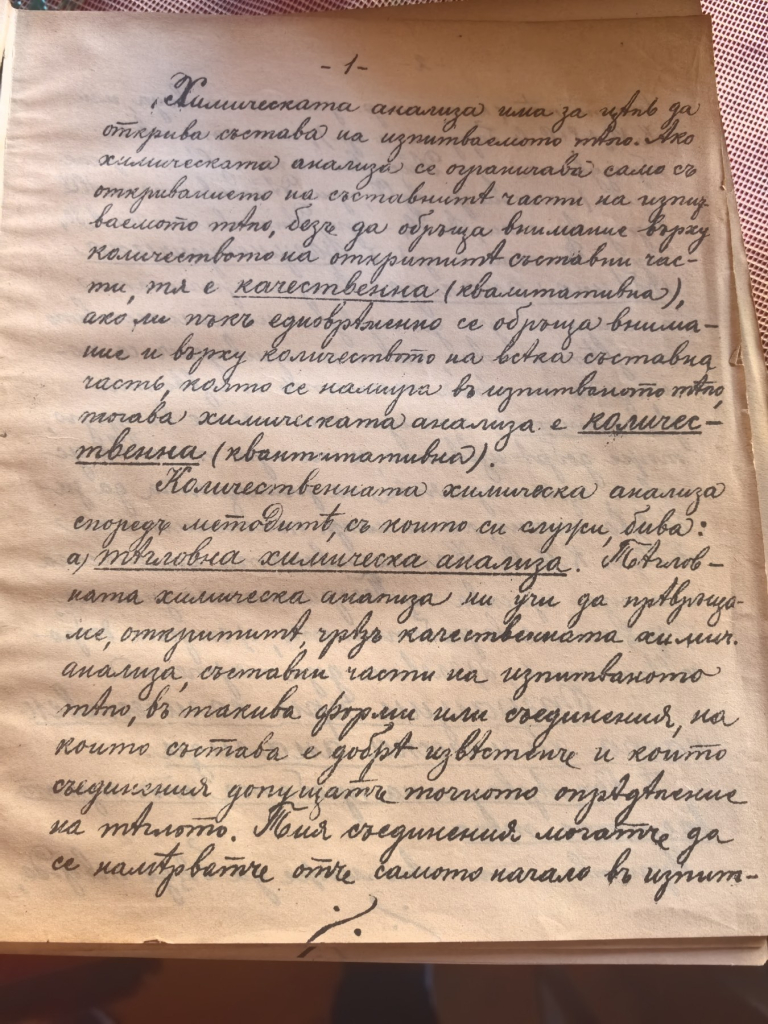 - 1 -
Химическата анализа има за цѣль да
открива състава на изпитваемото тѣло. Ако
химическата анализа се ограничава само съ
откриванието на съставнитѣ части на изпит
ваемото тѣло, безъ да обръща внимание върху
количеството на открититѣ съставни час-
ти, тя е качественна (квалитативна),
ако ли пъкъ едноврѣменно се обръща внима-
ние и върху количеството на всѣка съставна
часть, която се намира въ изпитваното тѣло,
тогава химическата анализа е количес-
твенна (квантитативна).
Количественната химическа анализа
споредъ методитѣ, съ които си служи, бива:
а) тѣгловна химическа анализа. Тѣглов-
ната химическа анализа ни учи да прѣвръща-
ме, открититѣ, чрѣзъ качественната химич.
анализа, съставни части на изпитваното
тѣло, въ такива форми или съединения, на
които състава е добрѣ извѣстенъ и които
съединения допущатъ точното опрѣдѣление
на тѣглото. Тия съединения могатъ да
се намѣрватъ отъ самото начало въ изпит-
./.